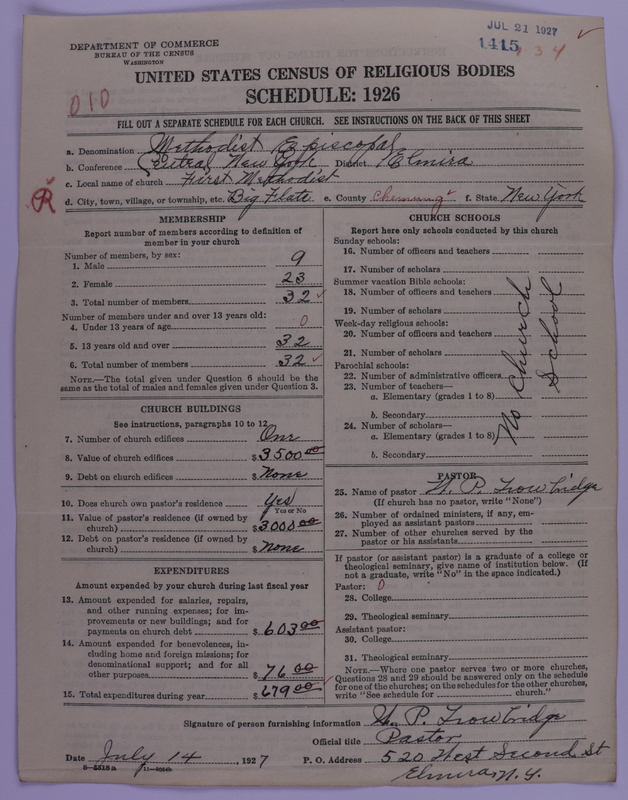 JUL 21 1927
1415
234
DEPARTMENT OF COMMERCE
BUREAU OF THE CENSUS
WASHINGTON
UNITED STATES CENSUS OF RELIGIOUS BODIES
SCHEDULE: 1926
010
FILL OUT A SEPARATE SCHEDULE FOR EACH CHURCH. SEE INSTRUCTIONS ON THE BACK OF THIS SHEET
a. Denomination Methodist Episcopal
b. Conference Central New York District Elmira
c. Local name of church First Methodist
R
d. City, town, village, or township, etc. Big Flats e. County Chemung f. State New York
MEMBERSHIP
Report number of members according to definition of
member in your church
Number of members, by sex:
1. Male 9
2. Female 23
3. Total number of members 32
Number of members under and over 13 years old:
4. Under 13 years of age 0
5. 13 years old and over 32
6. Total number of members 32
NOTE.—The total given under Question 6 should be the
same as the total of males and females given under Question 3.
CHURCH BUILDINGS
See instructions, paragraphs 10 to 12
7. Number of church edifices One
8. Value of church edifices $3500 00
9. Debt on church edifices $None
10. Does church own pastor's residence Yes
Yes or No
11. Value of pastor's residence (if owned by
church) $3000 00
12. Debt on pastor's residence (if owned by
church) $None
EXPENDITURES
Amount expended by your church during last fiscal year
13. Amount expended for salaries, repairs,
and other running expenses; for im-
provements or new buildings; and for
payments on church debt $603 00
14. Amount expended for benevolences, in-
cluding home and foreign missions; for
denominational support; and for all
other purposes $76 00
15. Total expenditures during year $679 00
CHURCH SCHOOLS
Report here only schools conducted by this church
Sunday schools:
16. Number of officers and teachers
17. Number of scholars
Summer vacation Bible schools:
18. Number of officers and teachers
19. Number of scholars
Week-day religious schools:
20. Number of officers and teachers
21. Number of scholars
Parochial schools:
22. Number of administrative officers
23. Number of teachers—
a. Elementary (grades 1 to 8)
b. Secondary
24. Number of scholars—
a. Elementary (grades 1 to 8)
b. Secondary
No Church
School
PASTOR
25. Name of pastor W. P. Trowbridge
(If church has no pastor, write "None")
26. Number of ordained ministers, if any, em-
ployed as assistant pastors
27. Number of other churches served by the
pastor or his assistants
If pastor (or assistant pastor) is a graduate of a college or
theological seminary, give name of institution below. (If
not a graduate, write "No" in the space indicated.)
Pastor: 0
28. College
29. Theological seminary
Assistant pastor:
30. College
31. Theological seminary
NOTE.—Where one pastor serves two or more churches,
Questions 28 and 29 should be answered only on the schedule
for one of the churches; on the schedules for the other churches,
write "See schedule for church."
Signature of person furnishing information W. P. Trowbridge
Official title Pastor
Date July 14, 1927 P. O. Address 520 West Second St
Elmira N. Y.